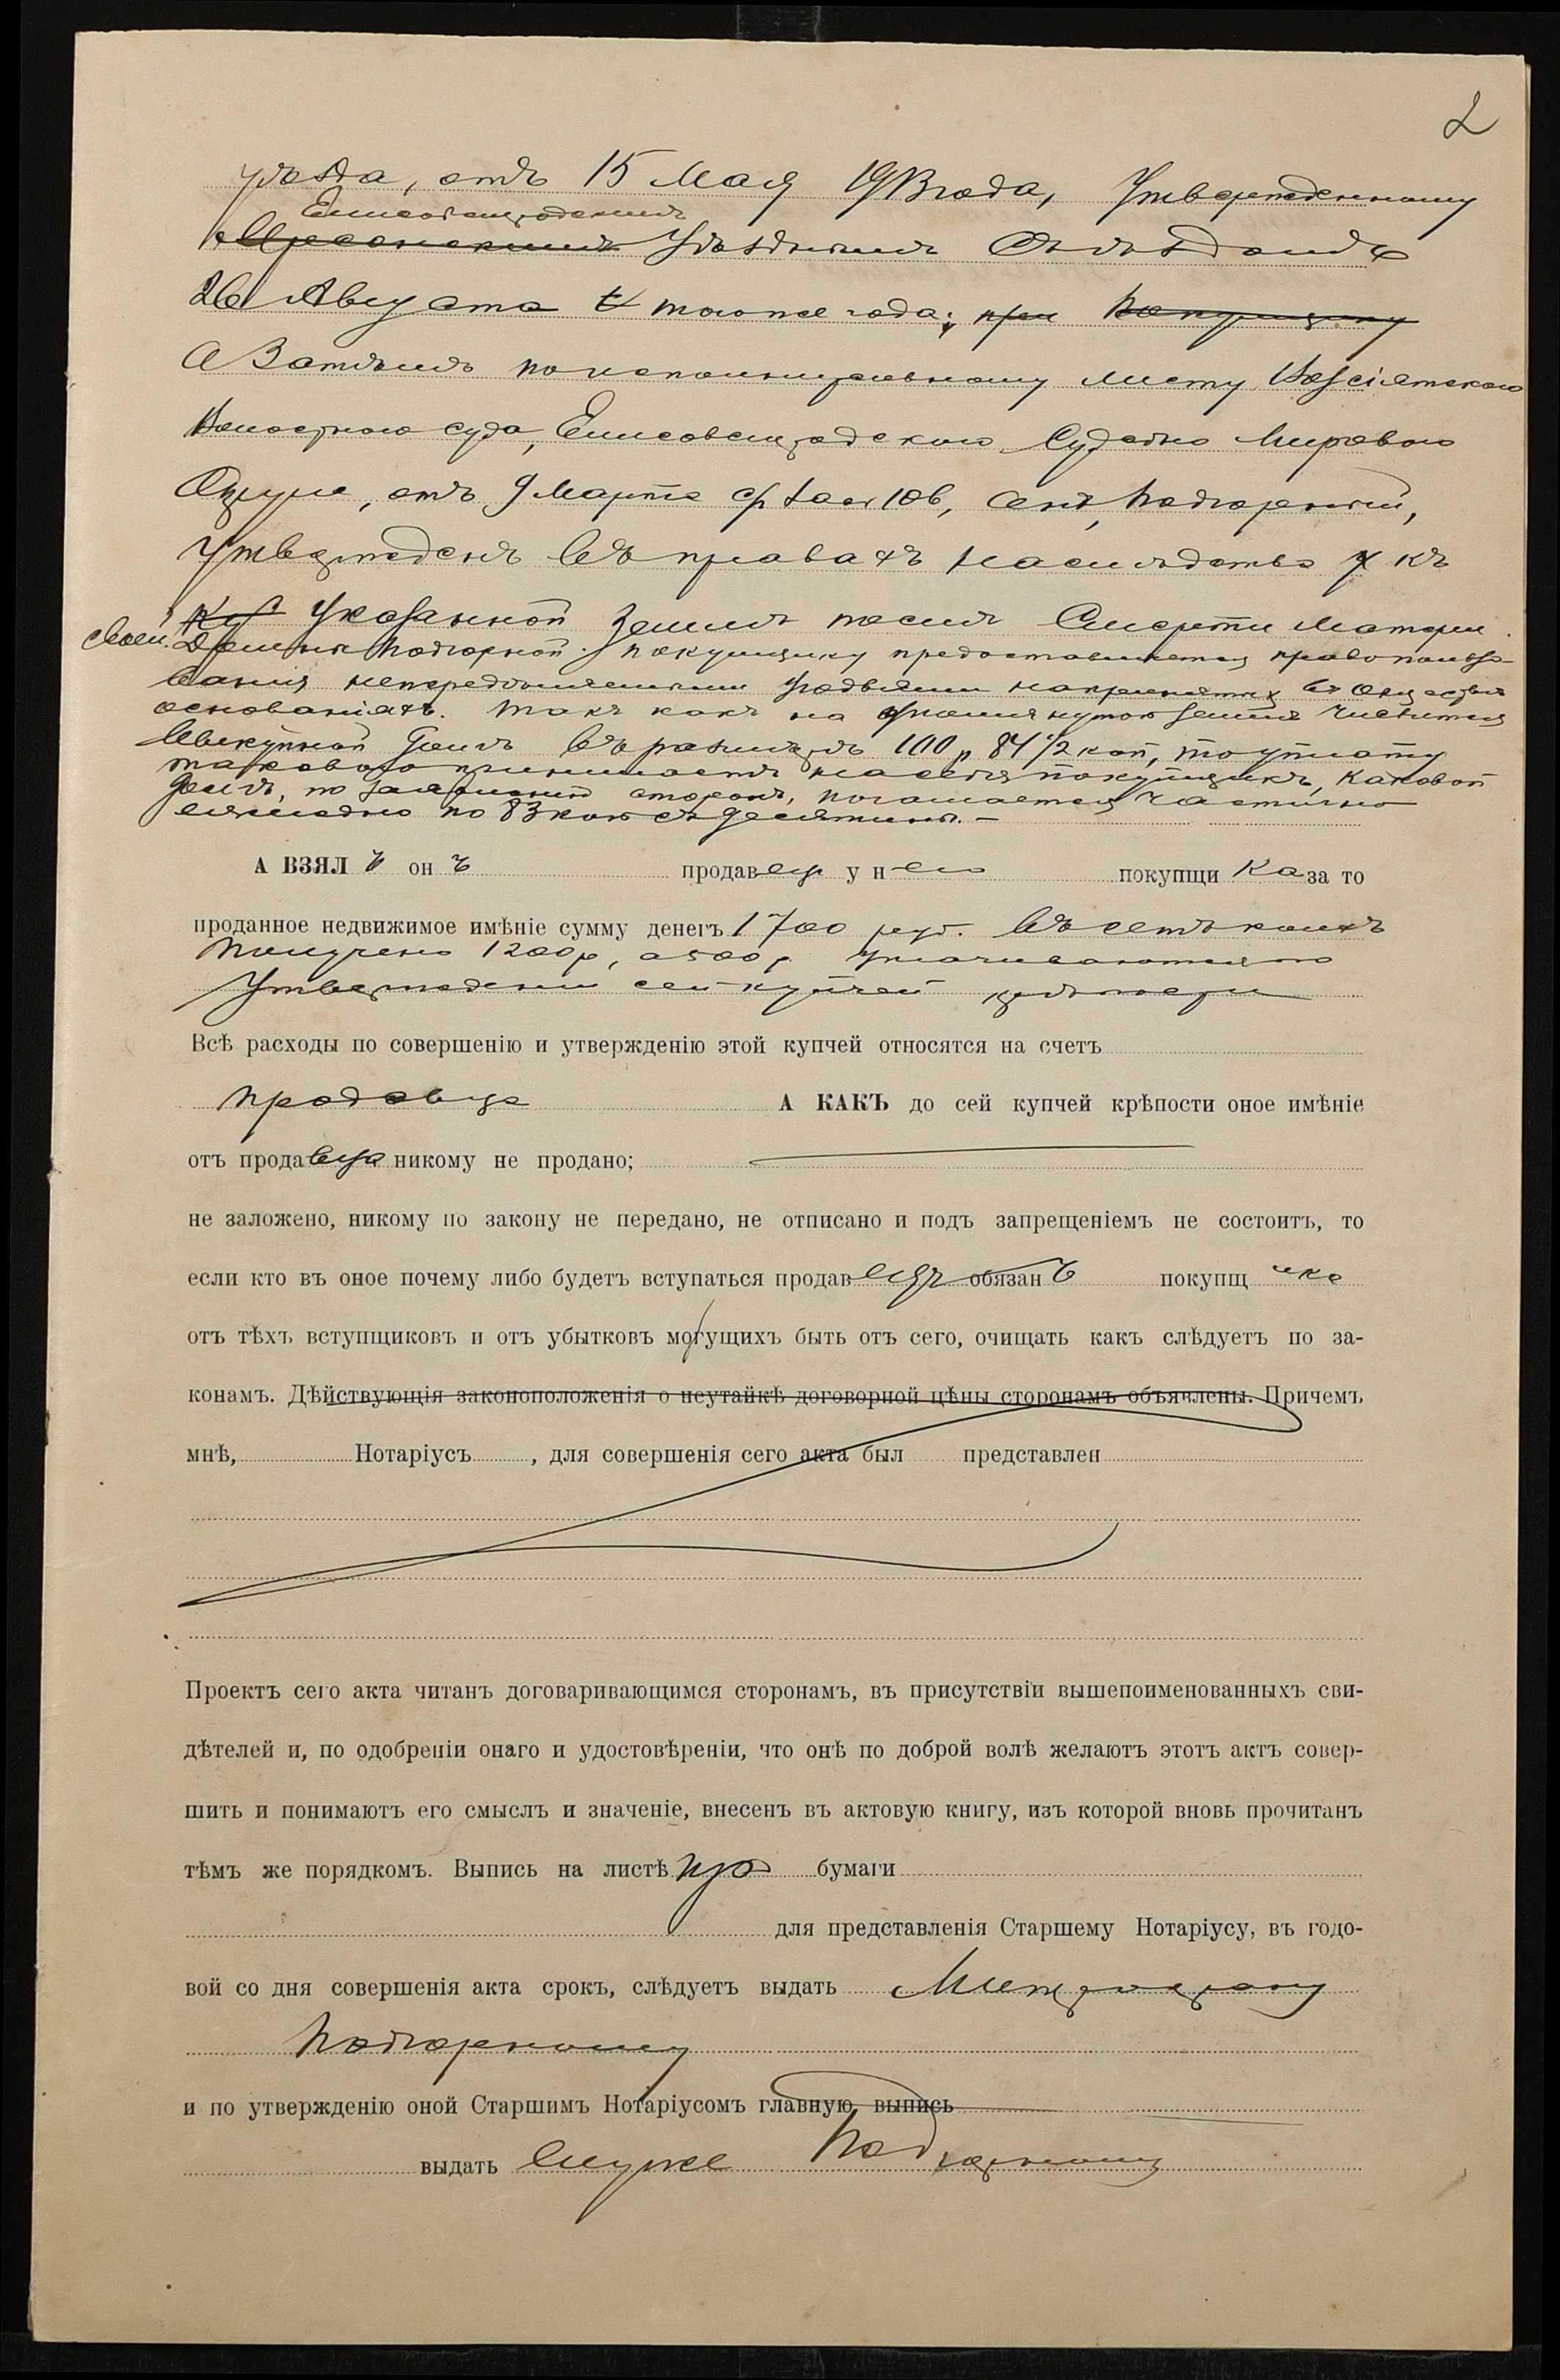 2
уѣзда, отъ 15 Мая 1913 года, Утвержденному
Елисаветградскимъ
Херсонскимъ Уѣзднымъ Съѣздомъ
26 Августа того же года; при покупщику
А Затѣмъ по исполнительному листу
Волостного суда, Елисаветградскаго Судебно Мирового
Округа, отъ 9 Марта с/г за № 106, онъ, Подгорный,
Утвержденъ въ правахъ наслѣдства къ
Указанной землѣ послѣ Смерти Матери
своей Подгорной. Покупщику предоставляется право пользо-
ванія нераздѣльными угодьями на въ Обществѣ
основаніяхъ. Такъ какъ на упомянутой землѣ числится
выкупной долгъ въ размѣрѣ 100 р 84 1/2 коп, то уплату
такового принимаетъ на себя покупщикъ, каковой
долгъ, по заявленію сторонъ, погашается частично
ежегодно по 83 коп съ десятины.-
А ВЗЯЛ ъ он ъ продавецъ у него покупщи ка за то
проданное недвижимое имѣніе сумму денегъ 1700 руб. въ счетъ коихъ
получено 1200 р, а 500 р уплачиваются по
Утвержденіи сей купчей крѣпости
Всѣ расходы по совершенію и утвержденію этой купчей относятся на счетъ
продавца А КАКЪ до сей купчей крѣпости оное имѣніе
отъ продавца никому не продано;
не заложено, никому по закону не передано, не отписано и подъ запрещеніемъ не состоитъ, то
если кто въ оное почему либо будетъ вступаться продавецъ обязан ъ покупщ ика
отъ тѣхъ вступщиковъ и отъ убытковъ могущихъ быть отъ сего, очищать какъ слѣдуетъ по за-
конамъ. Дѣйствующія законоположенія о неутайкѣ договорной цѣны сторонамъ объявлены. Причемъ
мнѣ, Нотаріусъ , для совершенія сего акта был представлен
Проектъ сего акта читанъ договаривающимся сторонамъ, въ присутствіи вышепоименованныхъ сви-
дѣтелей и, по одобреніи онаго и удостовѣреніи, что онѣ по доброй волѣ желаютъ этотъ актъ совер-
шить и понимаютъ его смыслъ и значеніе, внесенъ въ актовую книгу, изъ которой вновь прочитанъ
тѣмъ же порядкомъ. Выпись на листѣ бумаги
для представленія Старшему Нотаріусу, въ годо-
вой со дня совершенія акта срокъ, слѣдуетъ выдать
Подгорному
и по утвержденію оной Старшимъ Нотаріусомъ главную выпись
выдать ему же Подгорному